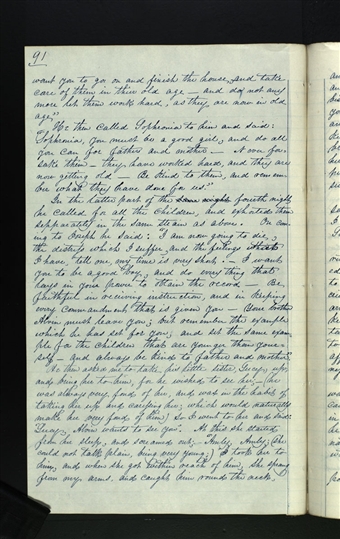 91
want you to go on and finish the house, and take
care of them in their old age — and do not any
more let them work hard, as they are now in old
age."
He then called Sophronia to him and said:
"Sophronia, you must be a good girl, and do all
you can for father and mother — never for-
sake them — they have worked hard, and they are
now getting old — Be kind to them, and remem-
ber what they have done for us."
In the latter part of the fourth night
he called for all the children, and exhorted them
separately in the same strain as above. On com-
ing to Joseph he said: "I am now going to die,
the distress which I suffer, and the feelings that
I have, tell me my time is very short: — I want
you to be a good boy, and do every thing that
lays in your power to obtain the record — Be
faithful in receiving instruction, and in keeping
every commandment that is given you — Your brother
Alvin must leave you; but remember the example
which he has set for you, and set the same exam-
ple for the children that are younger than your-
self — and always be kind to father and mother."
He then asked me to take his little sister, Lucy, up,
and bring her to him, for he wished to see her; (he
was always very fond of her, and was in the habit of
taking her up and carrying her; which would naturally
make her very fond of him) So I went to her and said:
"Lucy, Alvin wants to see you". At this she started
from her sleep, and screamed out; — Amby, Amby; (she
could not talk plain, being very young;) I took her to
him, and when she got within reach of him, she sprang
from my arms, and caught him round the neck,